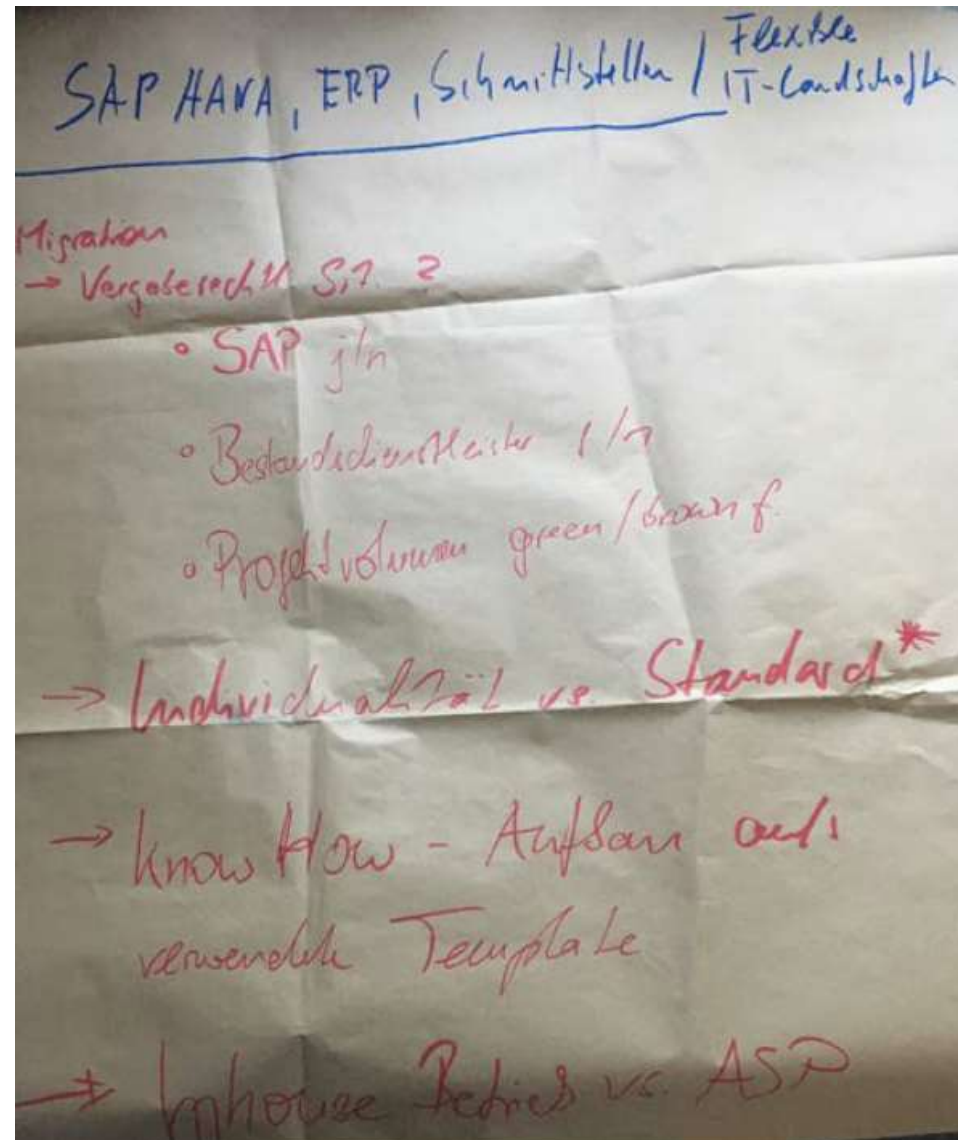 SAP HANA, ERP, Schnittstellen / Flexible IT-Landschaften
Migration
→ Vergaberechtl. Sit. ?
° SAP j/n
° Bestandsdienstleister j/n
° Projektvolumen green/brown f.
→ Individualität vs. Standard*
→ Know How - Aufbau auf
verwendete Template
→ Inhouse Betrieb vs. ASP